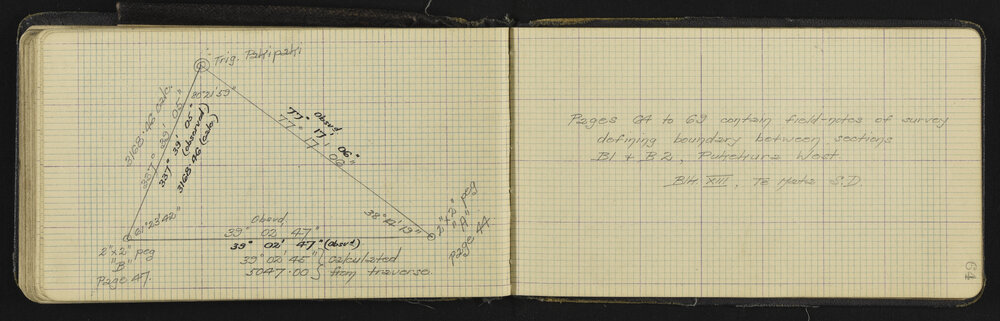 Trig. Pakipaki
80° 21' 59"
3168.46 calc.
337° 39' 05"
337° 39' 05"
(observed)
3168.46 (calc.)
Obsvd
77° 17' 06"
77° 17' 06"
61° 23' 42"
38° 14' 19"
2"x2" peg
"B"
Page 47.
2"x2" peg
"A"
Page 47.
Obsvd
39° 02' 47"
39° 02' 47" (Obsvd.)
39° 02' 45" } Calculated
5047.00 } from traverse.
Pages 64 to 69 contain field-notes of survey
defining boundary between sections
B1 & B2, Pukehara West
Blk. XIII, Te Mata S.D.
64